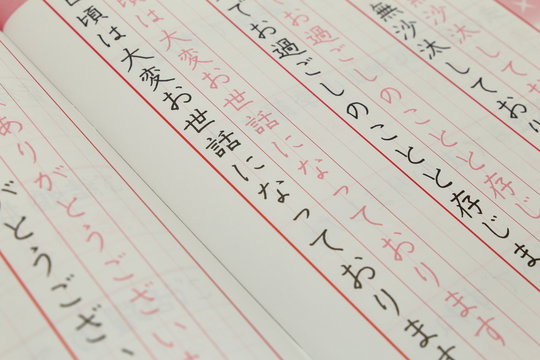 無沙汰しており
無沙汰しており
お過ごしのことと存じ
てお過ごしのことと存じま
頃は大変お世話になっております
日頃は大変お世話になっております
ありがとうござい
がとうござい